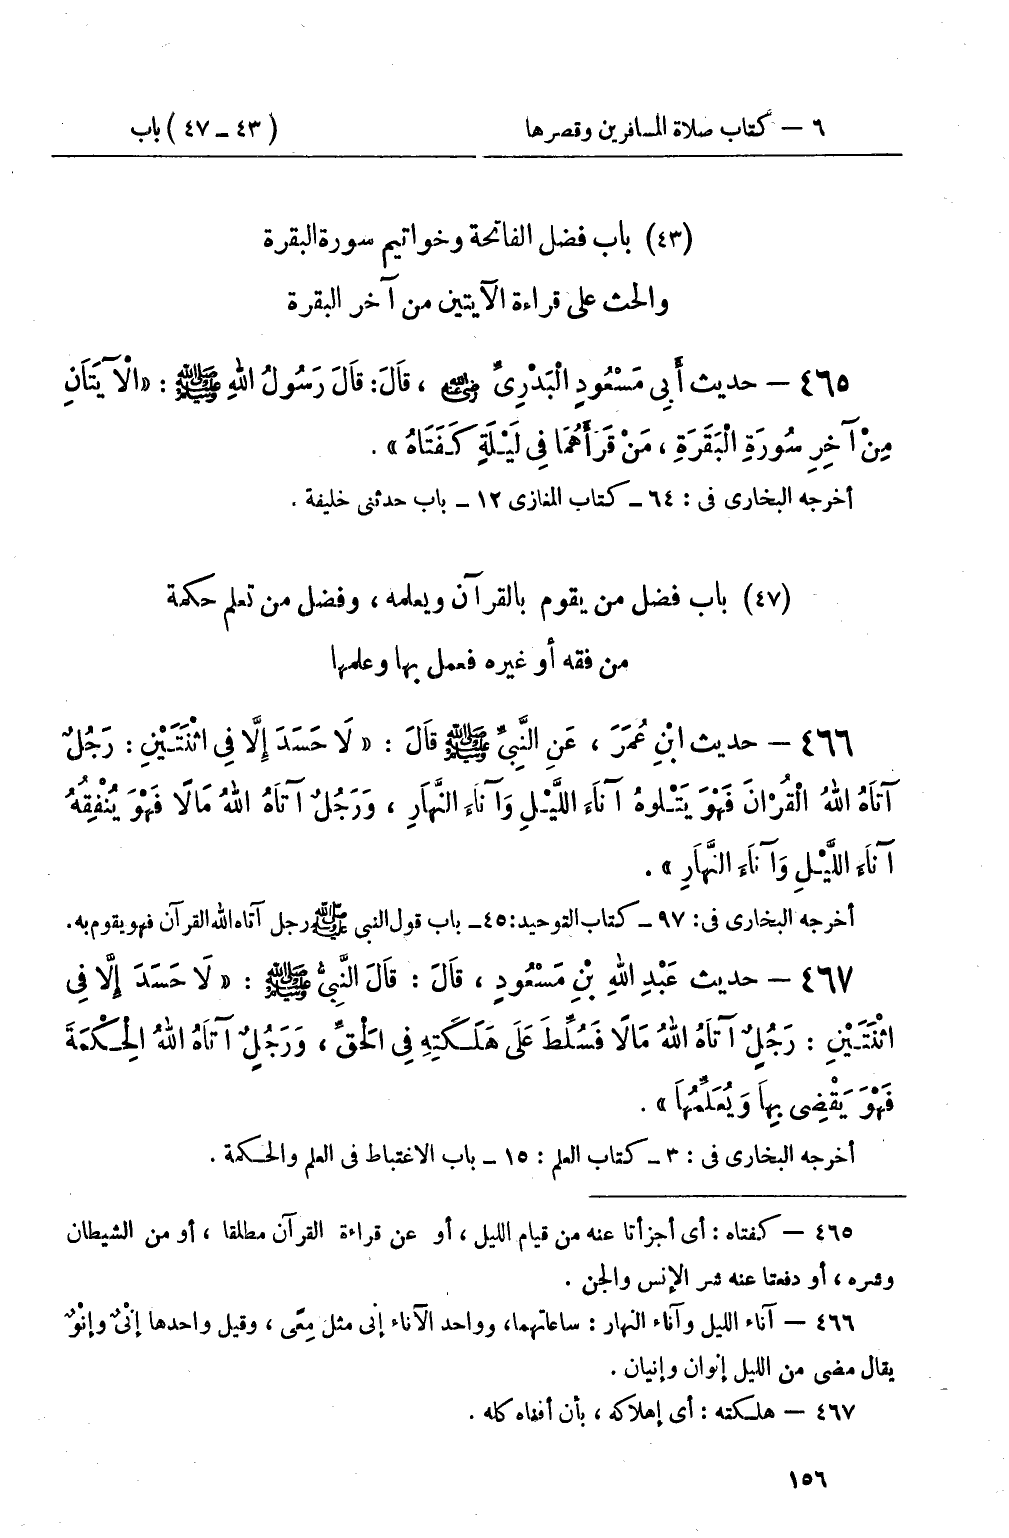 ٦ — كتاب صلاة المسافرين وقصرها (٤٣ — ٤٧) باب
(٤٣) باب فضل الفاتحة وخواتيم سورة البقرة
والحث على قراءة الآيتين من آخر البقرة
٤٦٥ — حديث أَبِى مَسْعُودٍ الْبَدْرِىِّ رضي الله عنه ، قَالَ: قَالَ رَسُولُ اللهِ ﷺ : «الْآيَتَانِ
مِنْ آخِرِ سُورَةِ الْبَقَرَةِ ، مَنْ قَرَأَهُمَا فِى لَيْلَةٍ كَفَتَاهُ» .
أخرجه البخارى فى : ٦٤ ـ كتاب المغازى ١٢ ـ باب حدثنى خليفة .
(٤٧) باب فضل من يقوم بالقرآن ويعلمه ، وفضل من تعلم حكمة
من فقه أو غيره فعمل بها وعلمها
٤٦٦ — حديث ابْنِ عُمَرَ ، عَنِ النَّبِىِّ ﷺ قَالَ : « لَا حَسَدَ إِلَّا فِى اثْنَتَيْنِ : رَجُلٌ
آتَاهُ اللهُ الْقُرْآنَ فَهْوَ يَتْلُوهُ آنَاءَ اللَّيْلِ وَآنَاءَ النَّهَارِ ، وَرَجُلٌ آتَاهُ اللهُ مَالًا فَهْوَ يُنْفِقُهُ
آنَاءَ اللَّيْلِ وَآنَاءَ النَّهَارِ » .
أخرجه البخارى فى: ٩٧ ـ كتاب التوحيد: ٤٥ ـ باب قول النبى ﷺ رجل آتاه الله القرآن فهو يقوم به.
٤٦٧ — حديث عَبْدِ اللهِ بْنِ مَسْعُودٍ ، قَالَ : قَالَ النَّبِىُّ ﷺ : « لَا حَسَدَ إِلَّا فِى
اثْنَتَيْنِ : رَجُلٍ آتَاهُ اللهُ مَالًا فَسُلِّطَ عَلَى هَلَكَتِهِ فِى الْحَقِّ ، وَرَجُلٍ آتَاهُ اللهُ الْحِكْمَةَ
فَهْوَ يَقْضِى بِهَا وَيُعَلِّمُهَا» .
أخرجه البخارى فى : ٣ ـ كتاب العلم : ١٥ ـ باب الاغتباط فى العلم والحكمة .
٤٦٥ — كفتاه : أى أجزأتا عنه من قيام الليل ، أو عن قراءة القرآن مطلقا ، أو من الشيطان
وشره ، أو دفعتا عنه شر الإنس والجن .
٤٦٦ — آناء الليل وآناء النهار : ساعاتهما، وواحد الآناء إنى مثل مِعًى ، وقيل واحدها إنْىٌ وإنْوٌ
يقال مضى من الليل إنوان وإنيان .
٤٦٧ — هلكته : أى إهلاكه ، بأن أفناه كله .
١٥٦